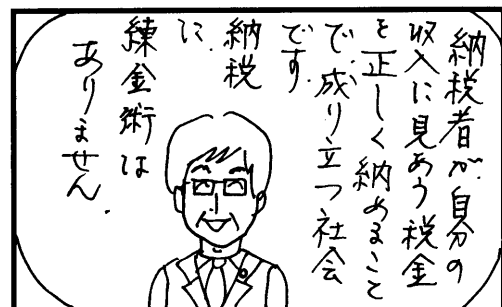 納税者が自分の
収入に見あう税金
を正しく納めること
で、成り立つ社会
です。
納税
に、
練金術は
ありません。